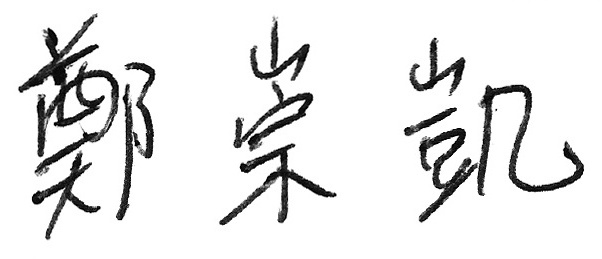 鄭崇凱